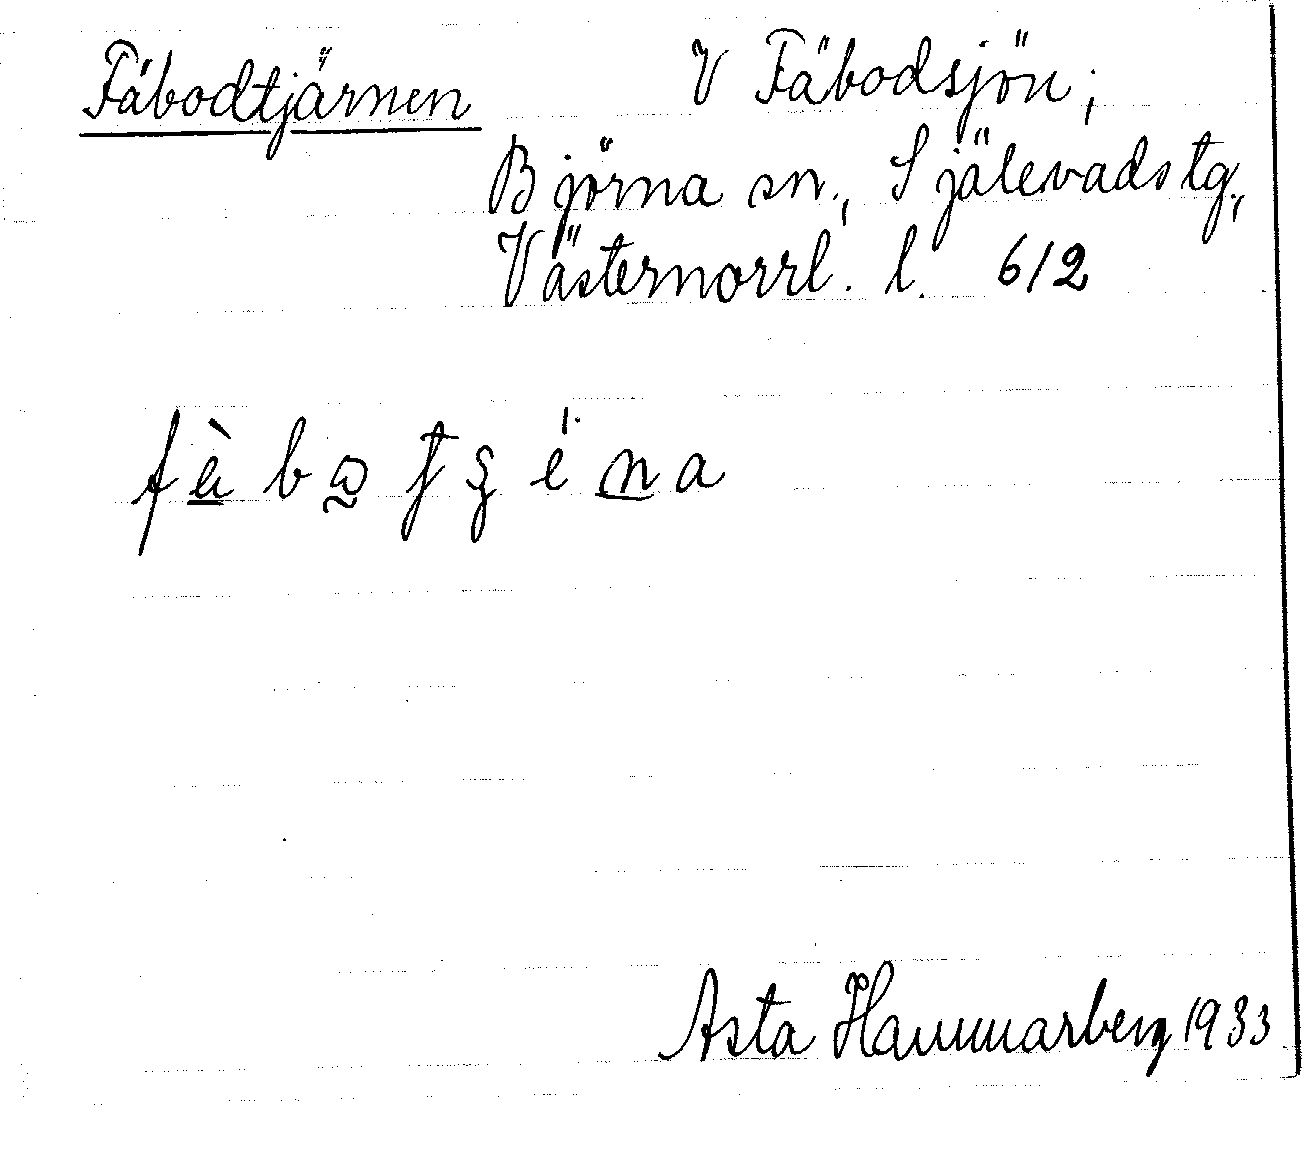 Fäbodtjärnen V Fäbodsjön;
Björna sn., Själevads tg.,
Västernorrl. l. 612
Asta Hammarberg 1933